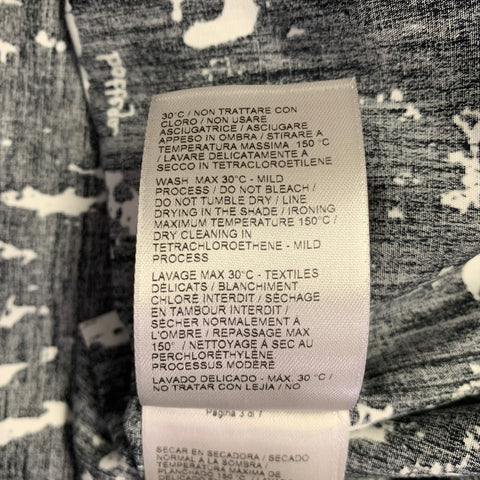 30°C / NON TRATTARE CON
CLORO / NON USARE
ASCIUGATRICE / ASCIUGARE
APPESO IN OMBRA / STIRARE A
TEMPERATURA MASSIMA 150 °C
/ LAVARE DELICATAMENTE A
SECCO IN TETRACLOROETILENE
WASH MAX 30°C - MILD
PROCESS / DO NOT BLEACH /
DO NOT TUMBLE DRY / LINE
DRYING IN THE SHADE / IRONING
MAXIMUM TEMPERATURE 150°C /
DRY CLEANING IN
TETRACHLOROETHENE - MILD
PROCESS
LAVAGE MAX 30°C - TEXTILES
DÉLICATS / BLANCHIMENT
CHLORÉ INTERDIT / SÉCHAGE
EN TAMBOUR INTERDIT /
SÉCHER NORMALEMENT À
L'OMBRE / REPASSAGE MAX
150° / NETTOYAGE À SEC AU
PERCHLORÉTHYLÈNE
PROCESSUS MODÉRÉ
LAVADO DELICADO - MÁX. 30°C /
NO TRATAR CON LEJÍA / NO
Pagina 3 di 7
SECAR EN SECADORA / SECADO
NORMAL A LA SOMBRA /
TEMPERATURA MÁXIMA DE
PLANCHADO 150 °C